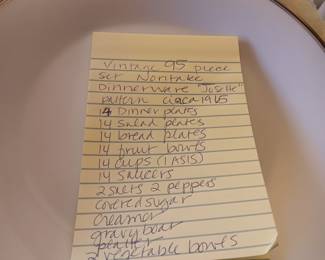 Vintage 95 piece
set Noritake
Dinnerware "Josette"
pattern circa 1965
14 Dinner plates
14 salad plates
14 bread plates
14 fruit bowls
14 cups (1 ASIS)
14 saucers
2 salts 2 peppers
covered sugar
creamer
gravy boat
platter
2 vegetable bowls